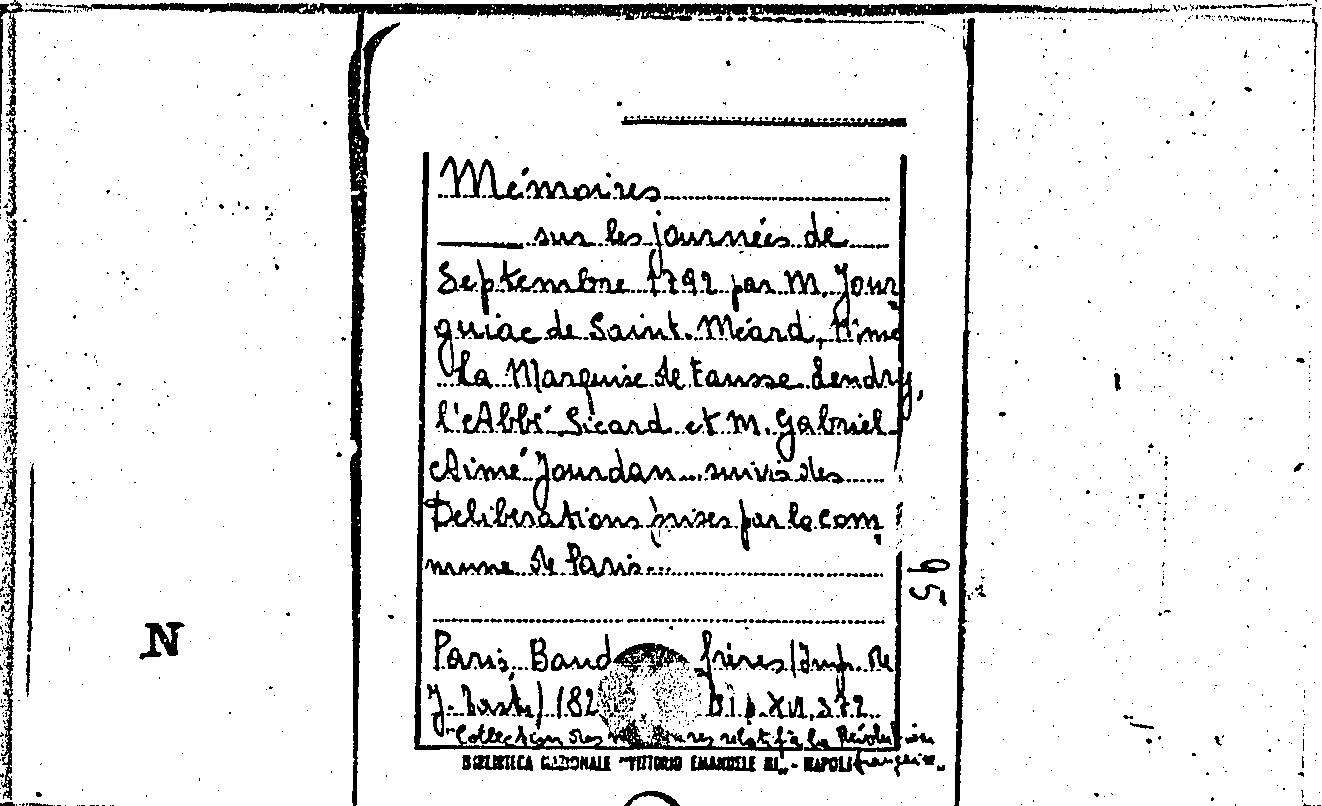 Mémoires
sur les journées de
Septembre 1792 par M. Jour
guiac de Saint-Méard, Mme
la Marquise de Fausse-Lendry,
l'Abbé Sicard et M. Gabriel-
Aimé Jourdan... suivis des
Délibérations prises par la com
mune de Paris...
95
N
Paris, Baud frères (Imp. de
J. ) 182 XVI, 372
"Collection des relatifs à la Révolution
française".
BIBLIOTECA NAZIONALE "VITTORIO EMANUELE III" - NAPOLI